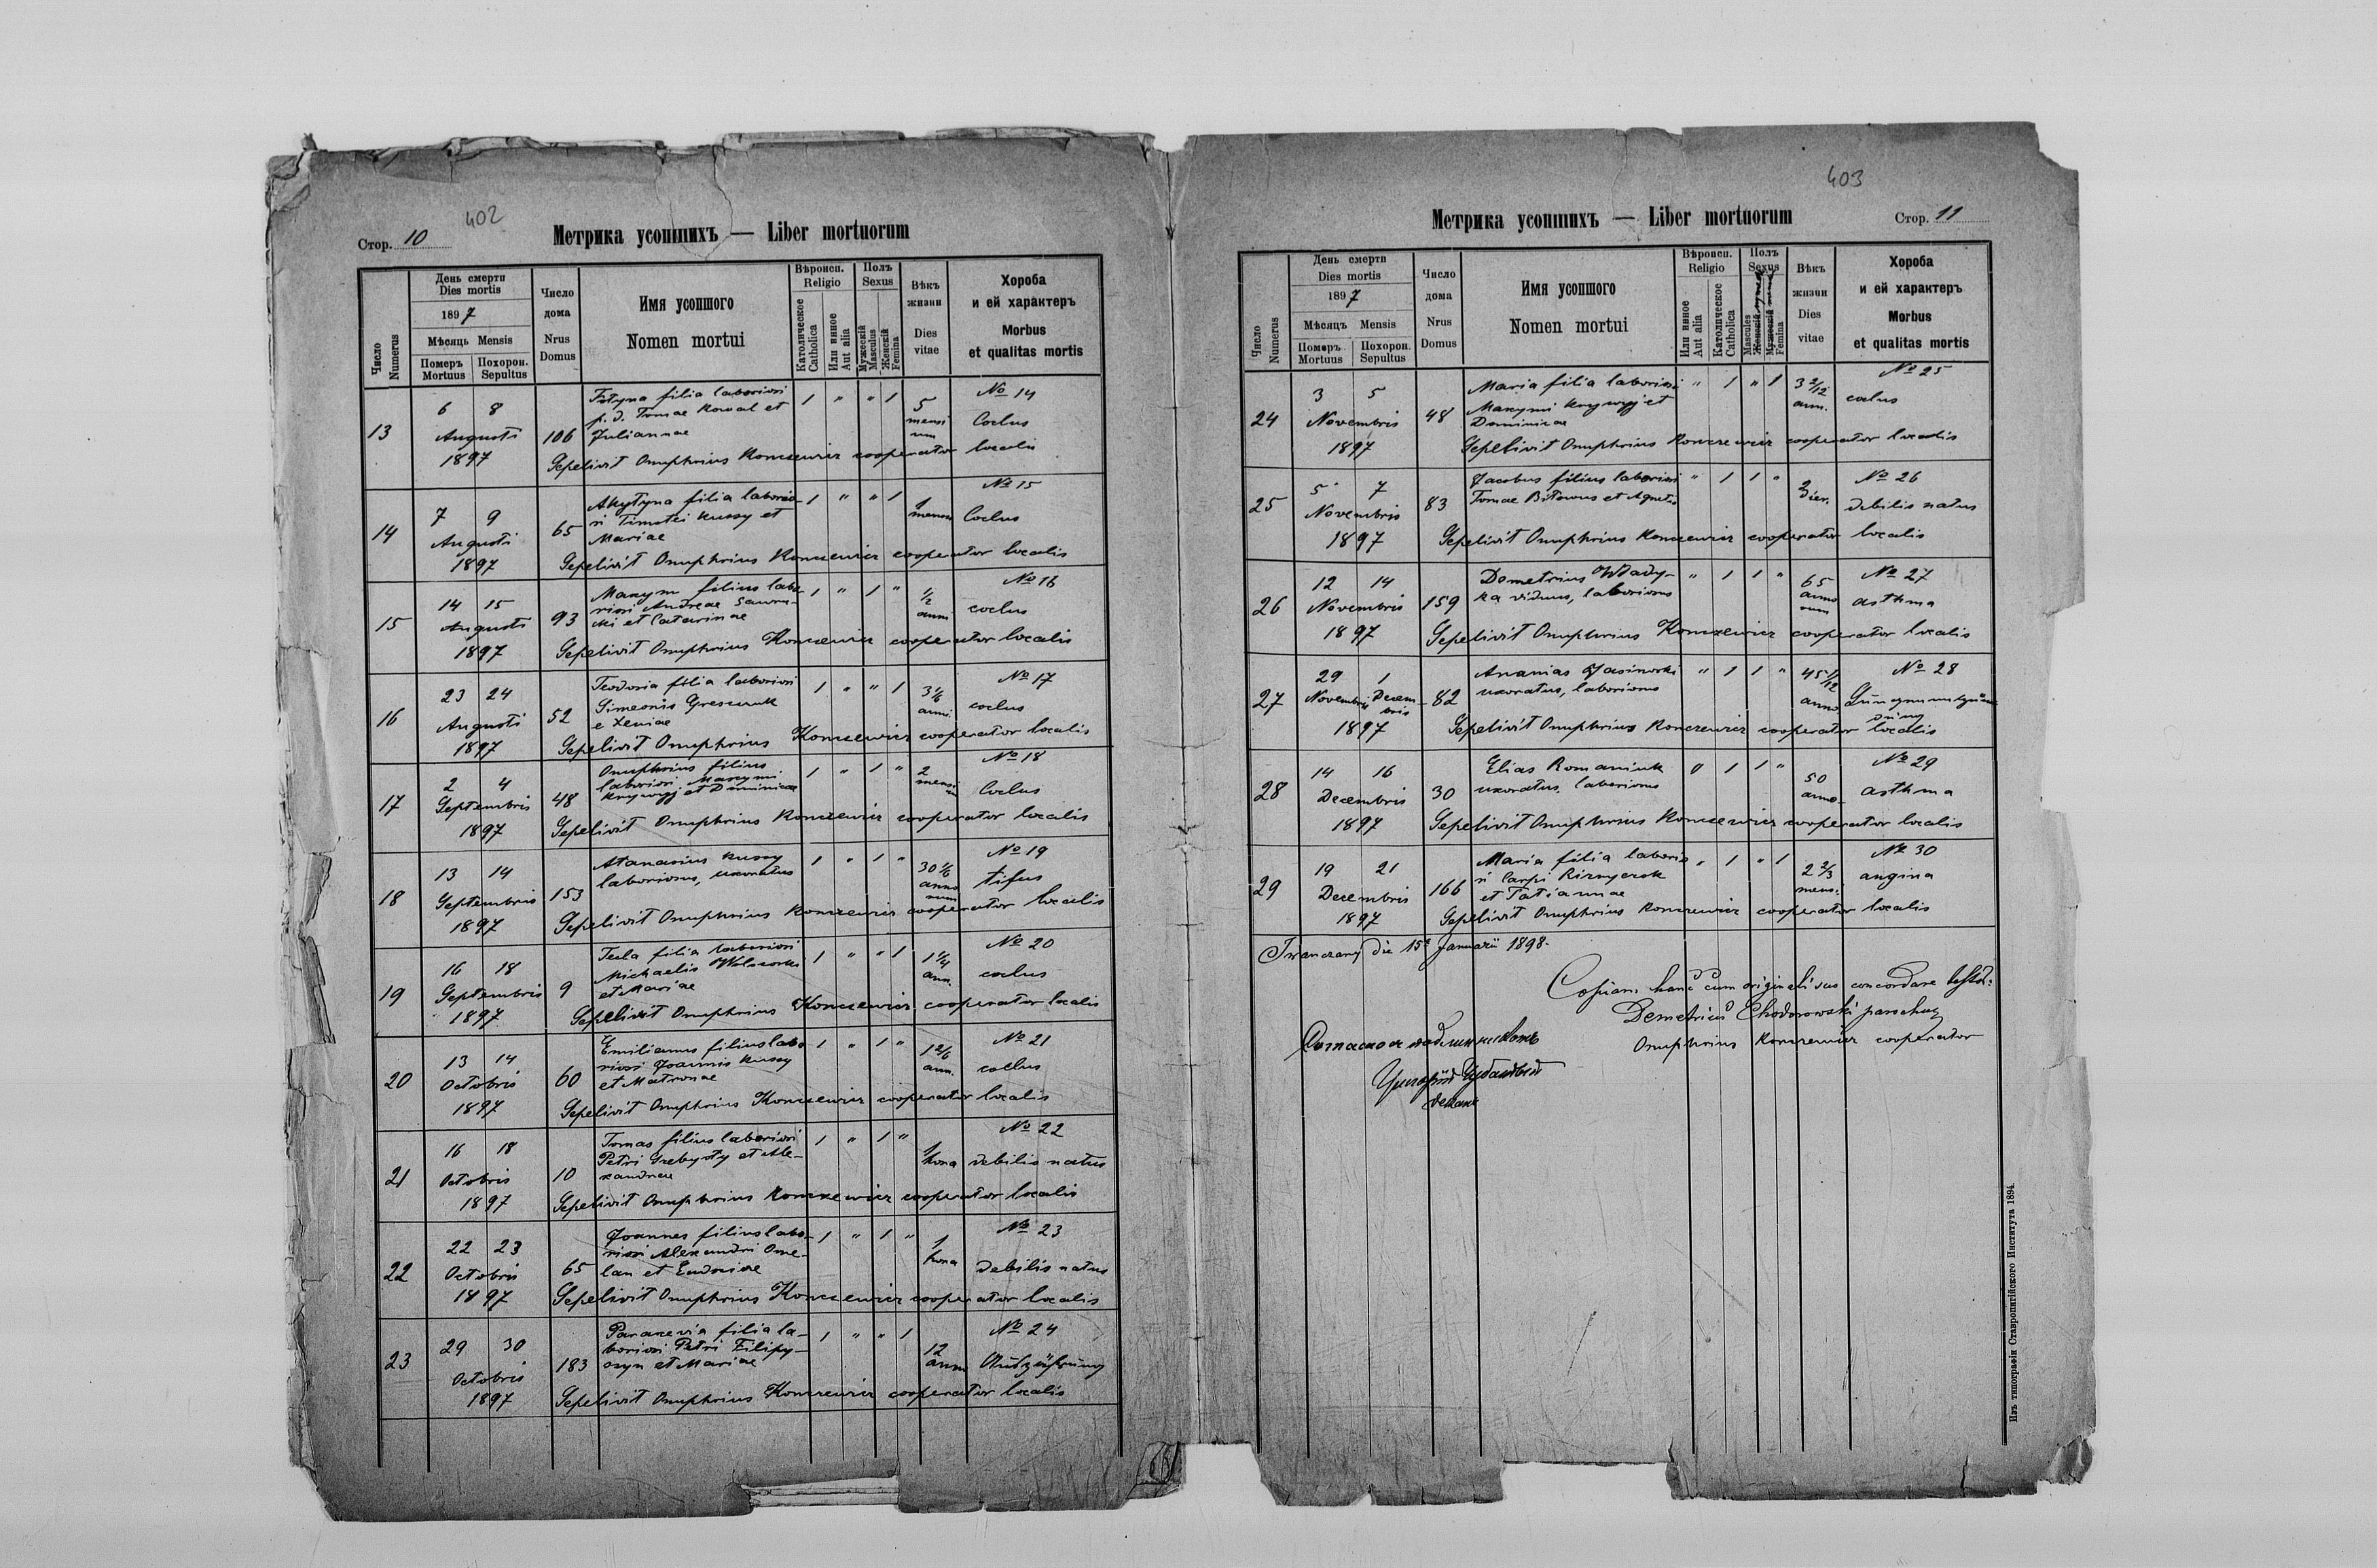 402
Стор. 10
Метрика усопшихъ — Liber mortuorum
Число Numerus
День смерти
Dies mortis
1897
Мѣсяць Mensis
Померъ Mortuus
Похорон. Sepultus
Число дома
Nrus Domus
Имя усопшого
Nomen mortui
Вѣроисп.
Religio
Католическое Catholica
Или инное Aut alia
Полъ
Sexus
Мужескій Masculus
Женскій Femina
Вѣкъ жизни
Dies vitae
Хороба
и ей характеръ
Morbus
et qualitas mortis
13
6 8
Augusti
1897
106
filia laboriosi
p. d. Tomae Kowal et
Juliannae
1 " " 1
5 mensium
№ 14
Coclus
Sepelivit Onuphrius Konczewicz cooperator localis
14
7 9
Augusti
1897
65
filia laborio-
si Timotei Kussy et
Mariae
1 " " 1
1 mensis
№ 15
Coclus
Sepelivit Onuphrius Konczewicz cooperator localis
15
14 15
Augusti
1897
93
Maxym filius labo-
riosi Andreae
et Catarinae
1 " 1 "
1/2 anni
№ 16
coclus
Sepelivit Onuphrius Konczewicz cooperator localis
16
23 24
Augusti
1897
52
Teodosia filia laboriosi
Simeonis
e Xeniae
1 " " 1
3 1/6 anni
№ 17
coclus
Sepelivit Onuphrius Konczewicz cooperator localis
17
2 4
Septembris
1897
48
Onuphrius filius
laboriosi Maxymi
Krywyj et Dominicae
1 " 1 "
2 mensium
№ 18
Coclus
Sepelivit Onuphrius Konczewicz cooperator localis
18
13 14
Septembris
1897
153
Atanasius Kussy
laboriosus, uxoratus
1 " 1 "
30 1/6 annorum
№ 19
tifus
Sepelivit Onuphrius Konczewicz cooperator localis
19
16 18
Septembris
1897
9
Tecla filia laboriosi
Michaelis
et Mariae
1 " " 1
1 1/4 ann.
№ 20
coclus
Sepelivit Onuphrius Konczewicz cooperator localis
20
13 14
Octobris
1897
60
Emilianus filius labo
riosi Joannis Kussy
et Matronae
1 " 1 "
1 2/6 ann.
№ 21
coclus
Sepelivit Onuphrius Konczewicz cooperator localis
21
16 18
Octobris
1897
10
Tomas filius laboriosi
Petri et Ale-
xandrae
1 " 1 "
1 hora
№ 22
debilis natus
Sepelivit Onuphrius Konczewicz cooperator localis
22
22 23
Octobris
1897
65
Joannes filius labo-
riosi Alexandri Ome-
lan et Eudoxiae
1 " 1 "
1 hora
№ 23
debilis natus
Sepelivit Onuphrius Konczewicz cooperator localis
23
29 30
Octobris
1897
183
Paraxevia filia la-
boriosi Petri Filipy-
et Mariae
1 " " 1
12 ann
№ 24
Sepelivit Onuphrius Konczewicz cooperator localis
403
Метрика усопшихъ — Liber mortuorum
Стор. 11
Число Numerus
День смерти
Dies mortis
1897
Мѣсяцъ Mensis
Померъ Mortuus
Похорон. Sepultus
Число дома
Nrus Domus
Имя усопшого
Nomen mortui
Вѣроисп.
Religio
Или инное Aut alia
Католическое Catholica
Полъ
Sexus
Masculus
Женскій
Мужескій
Femina
Вѣкъ жизни
Dies vitae
Хороба
и ей характеръ
Morbus
et qualitas mortis
24
3 5
Novembris
1897
48
Maria filia laboriosi
Maxymi Krywyj et
Dominicae
" 1 " 1
3 2/12 ann.
№ 25
coclus
Sepelivit Onuphrius Konczewicz cooperator localis
25
5 7
Novembris
1897
83
Jacobus filius laboriosi
Tomae et Agnetis
" 1 1 "
2 dier.
№ 26
debilis natus
Sepelivit Onuphrius Konczewicz cooperator localis
26
12 14
Novembris
1897
159
Demetrius Wlady-
ka viduus, laboriosus
" 1 1 "
65 annorum
№ 27
asthma
Sepelivit Onuphrius Konczewicz cooperator localis
27
29 1
Novembris Decembris
1897
82
Ananias Jasinski
uxoratus, laboriosus
" 1 1 "
45 1/12 anno
№ 28
Sepelivit Onuphrius Konczewicz cooperator localis
28
14 16
Decembris
1897
30
Elias Romaniuk
uxoratus, laboriosus
" 1 1 "
50 anno-
№ 29
asthma
Sepelivit Onuphrius Konczewicz cooperator localis
29
19 21
Decembris
1897
166
Maria filia laborio
si Carpi
et Tatiannae
" 1 " 1
2 2/3 mens.
№ 30
angina
Sepelivit Onuphrius Konczewicz cooperator localis
Iwanczany die 15ª Januarii 1898.
Copiam hanc cum originali suo concordare testor:
Demetrius Chodorowski parochus
Onuphrius Konczewicz cooperator
деканъ
Изъ типографіи Ставропигійского Института 1894.